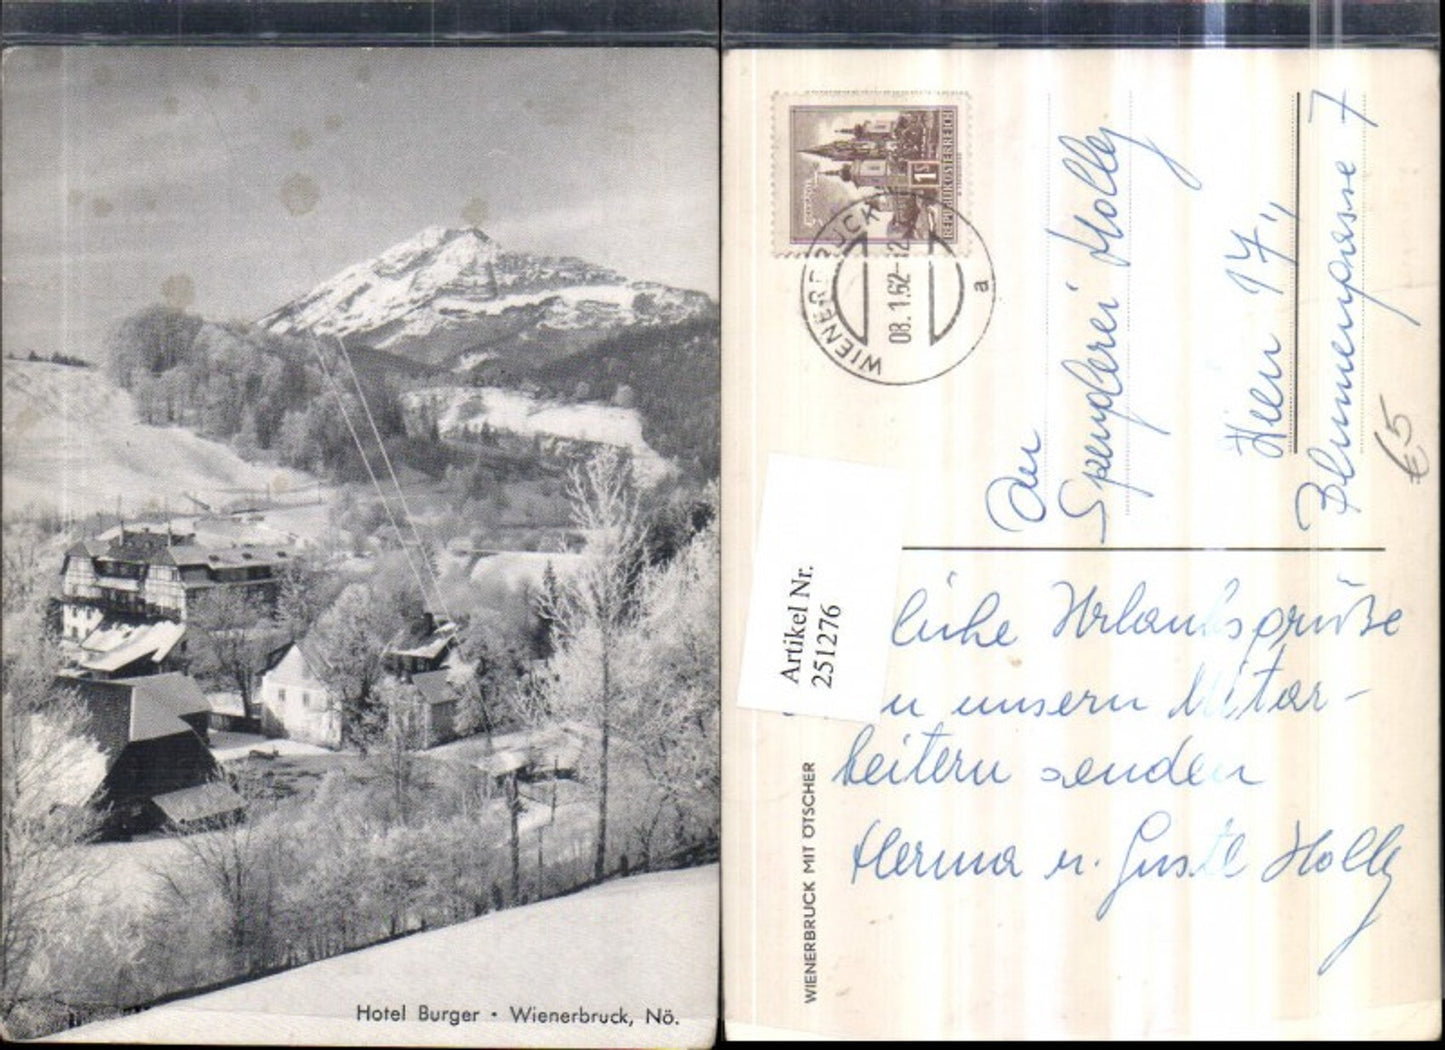 Hotel Burger • Wienerbruck, Nö.
REPUBLIK ÖSTERREICH
1S
WIENERBRUCK
08.1.62-12
a
An
Spenglerei Holly
Wien 17.,
Blumengasse 7
€5
Artikel Nr.
251276
liche Urlaubsgrüße
unsern Mitar-
beitern senden
Herma u. Gustl Holly
WIENERBRUCK MIT ÖTSCHER